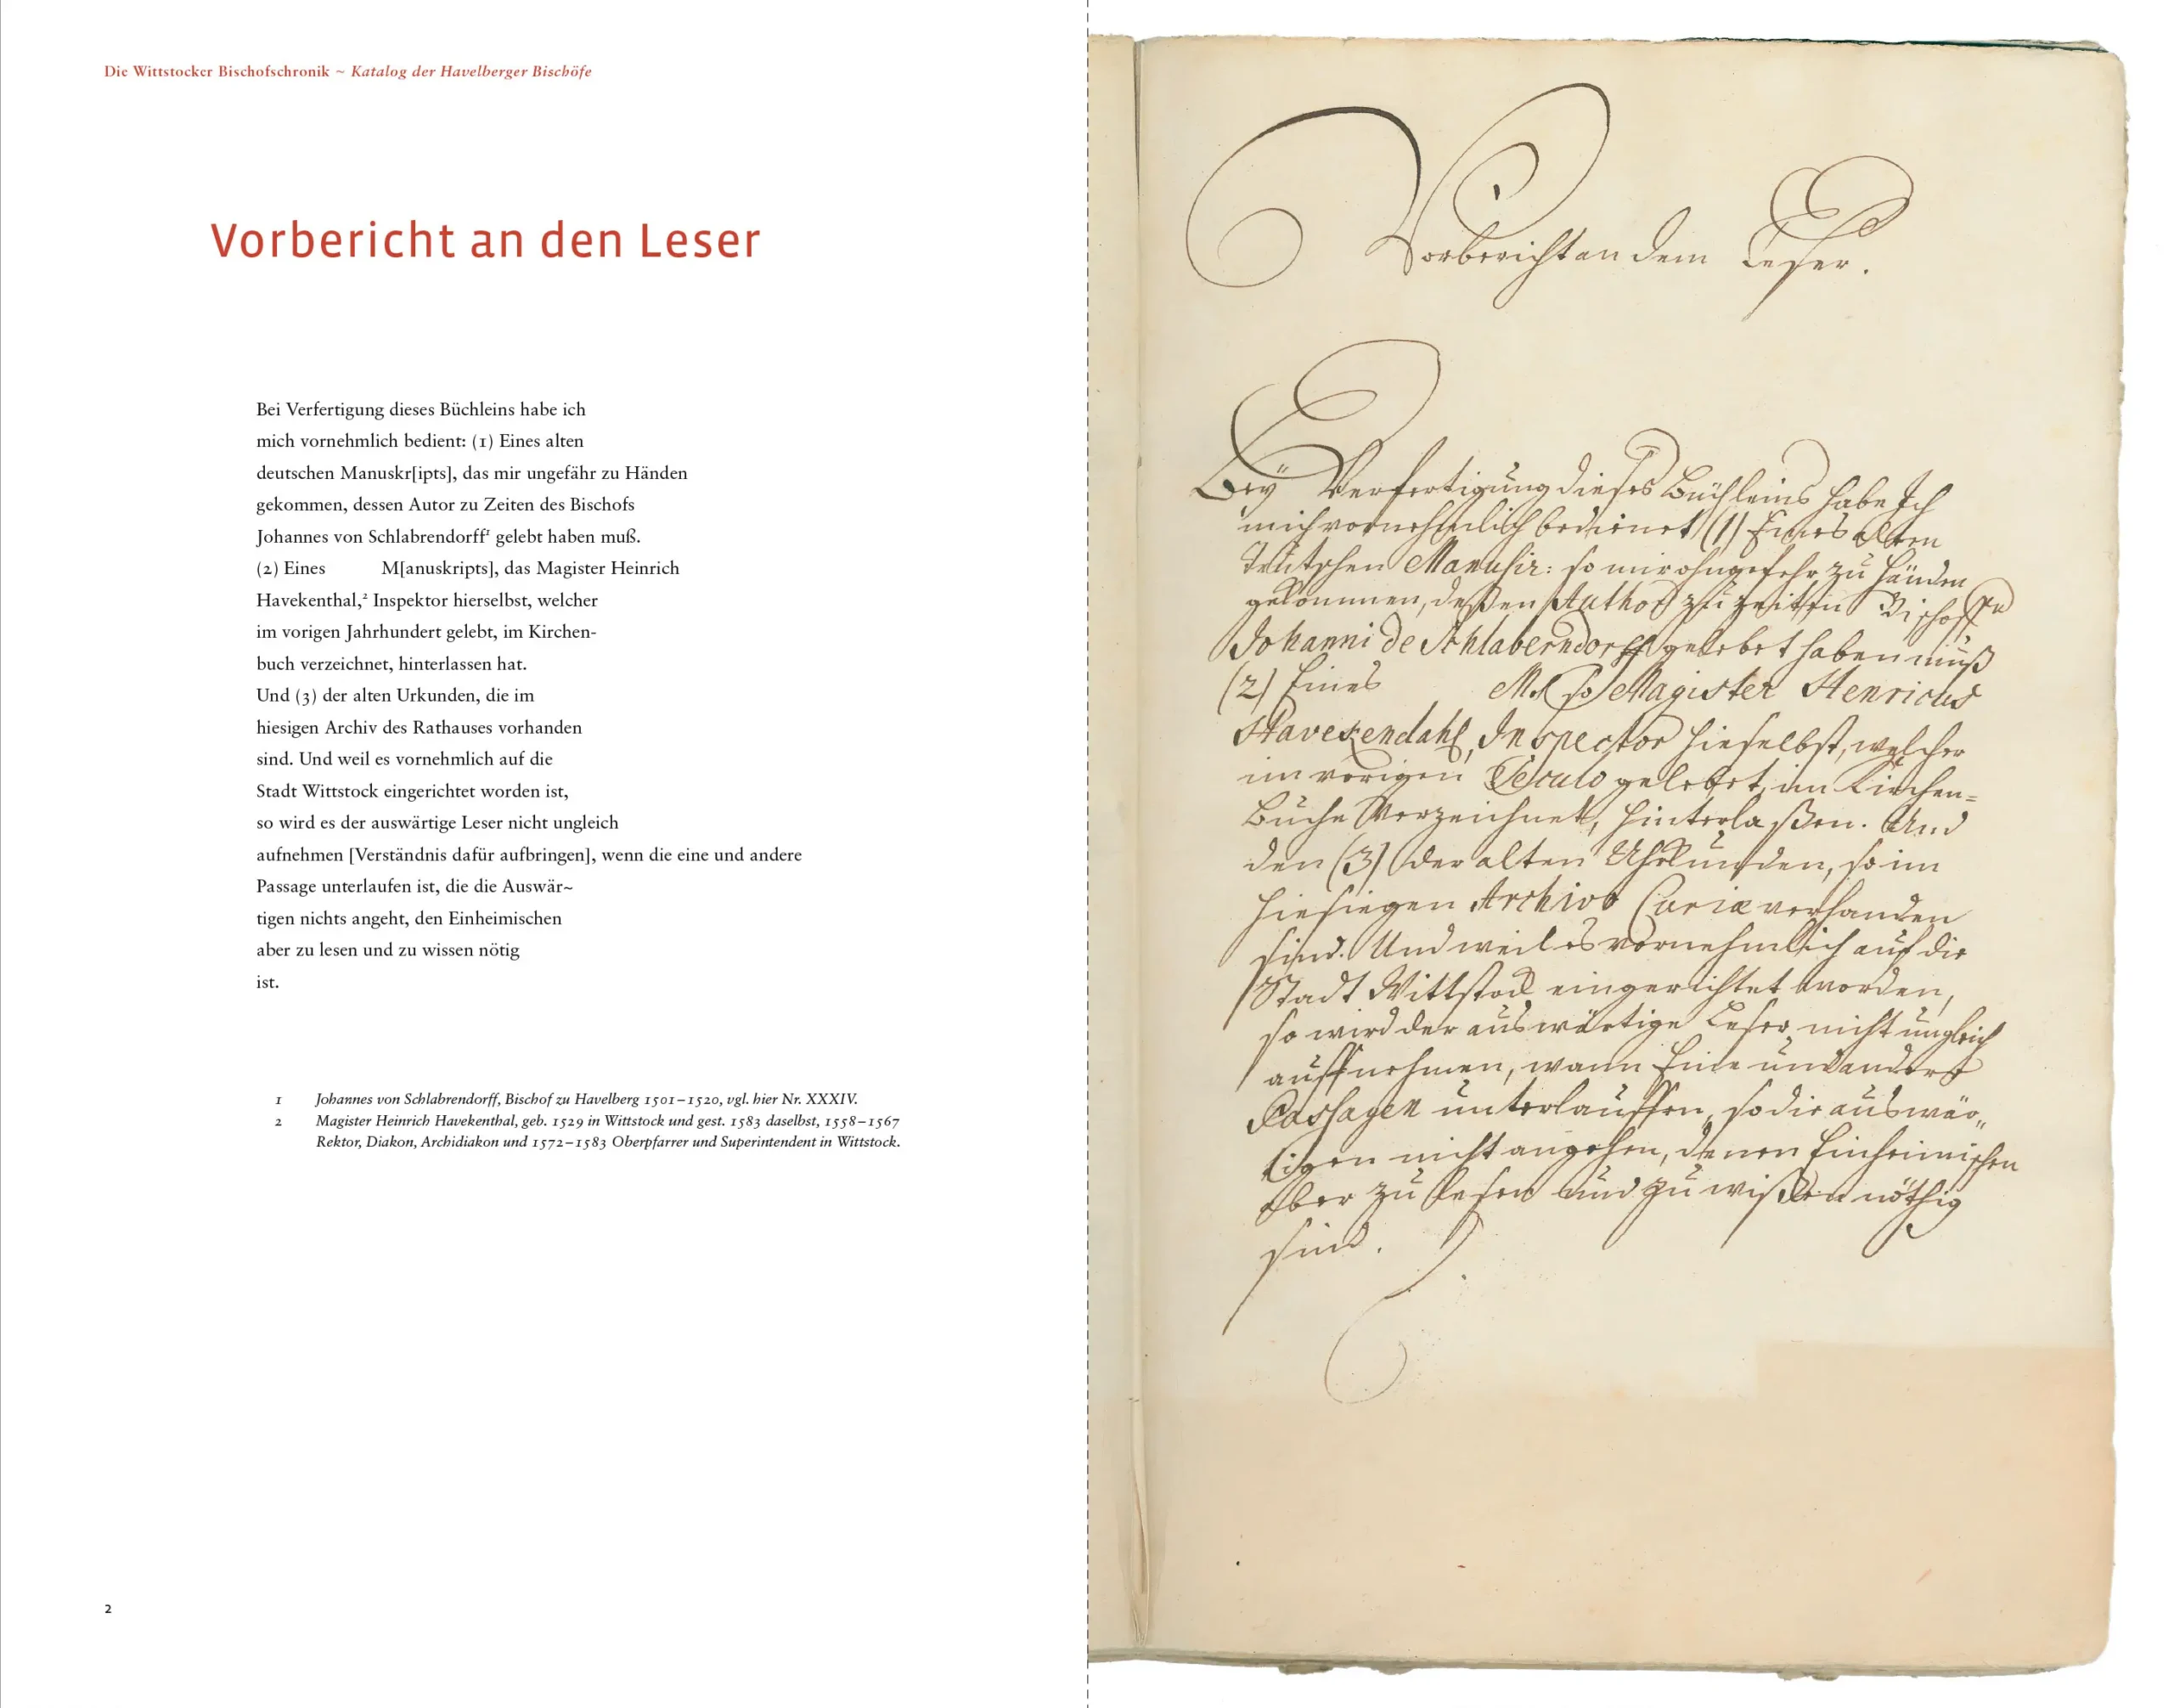 Die Wittstocker Bischofschronik ~ Katalog der Havelberger Bischöfe
Vorbericht an den Leser
Bei Verfertigung dieses Büchleins habe ich
mich vornehmlich bedient: (1) Eines alten
deutschen Manuskr[ipts], das mir ungefähr zu Händen
gekommen, dessen Autor zu Zeiten des Bischofs
Johannes von Schlabrendorff¹ gelebt haben muß.
(2) Eines M[anuskripts], das Magister Heinrich
Havekenthal,² Inspektor hierselbst, welcher
im vorigen Jahrhundert gelebt, im Kirchen-
buch verzeichnet, hinterlassen hat.
Und (3) der alten Urkunden, die im
hiesigen Archiv des Rathauses vorhanden
sind. Und weil es vornehmlich auf die
Stadt Wittstock eingerichtet worden ist,
so wird es der auswärtige Leser nicht ungleich
aufnehmen [Verständnis dafür aufbringen], wenn die eine und andere
Passage unterlaufen ist, die die Auswär~
tigen nichts angeht, den Einheimischen
aber zu lesen und zu wissen nötig
ist.
1 Johannes von Schlabrendorff, Bischof zu Havelberg 1501–1520, vgl. hier Nr. XXXIV.
2 Magister Heinrich Havekenthal, geb. 1529 in Wittstock und gest. 1583 daselbst, 1558–1567
Rektor, Diakon, Archidiakon und 1572–1583 Oberpfarrer und Superintendent in Wittstock.
2
Vorbericht an dem Leser.
Bey Verfertigung dieses Büchleins habe Ich
mich vornehmlich bedienet (1) Eines alten
Teütschen Manuscr: so mir ohngefehr zu Händen
gekommen, deßen Author zu zeiten Bischoffen
Johanni de Schlaberndorff gelebet haben muß
(2) Eines M. so Magister Henricus
Havekendahl, Inspector hieselbst, welcher
im vorigen Seculo gelebet, im Kirchen=
Buche Verzeichnet, hinterlaßen. Und
den (3) der alten Uhrkunden, so im
hiesiegen Archivo Curiæ verhanden
sind. Und weil es vornehmlich auf die
Stadt Wittstock eingerichtet worden,
so wird der auswärtige Leser nicht ungleich
auffnehmen, wann Eine und andere
Passagen unterlauffen, so die auswär„
tigen nicht angehen, denen Einheimischen
aber zu lesen und zu wißen nöthig
sind.